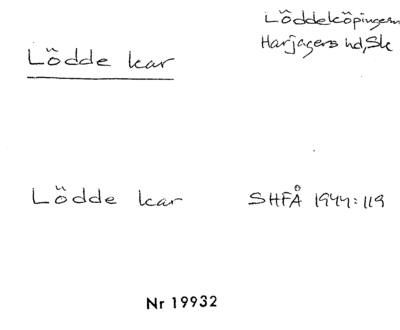 Löddeköpingem
Harjagers hd, Sk
Lödde kar
Lödde kar SHFÅ 1944:119
Nr 19932